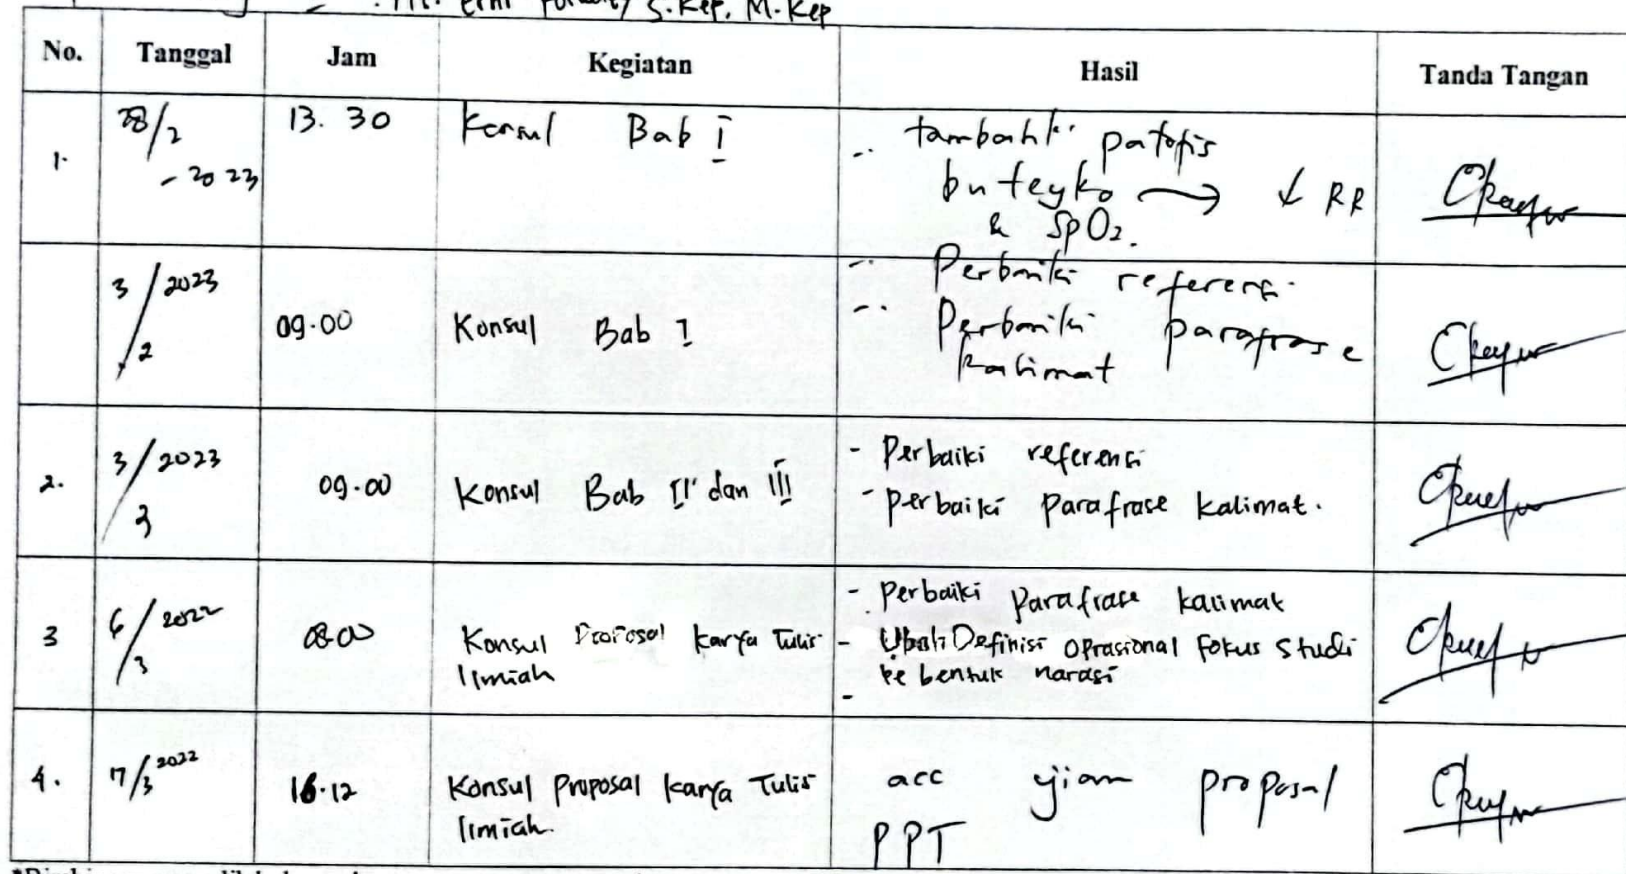 S.Kep, M.Kep
No. Tanggal Jam Kegiatan Hasil Tanda Tangan
1. 28/2 - 2023 13.30 Konsul Bab I
-. tambahk. patofis
buteyko → ↓ RR
& SpO2.
3/2 2023 09.00 Konsul Bab I
-. Perbaiki referensi.
-. Perbaiki parafrase
kalimat
2. 3/3 2023 09.00 Konsul Bab II dan III
- Perbaiki referensi
- perbaiki parafrase kalimat.
3 6/3 2022 08.00 Konsul Proposal karya Tulis
Ilmiah
- Perbaiki parafrase kalimat
- Ubah Definisi oprasional Fokus studi
ke bentuk narasi
-
4. 17/3 2022 16.12 Konsul Proposal karya Tulis
Ilmiah.
acc ujian proposal
PPT